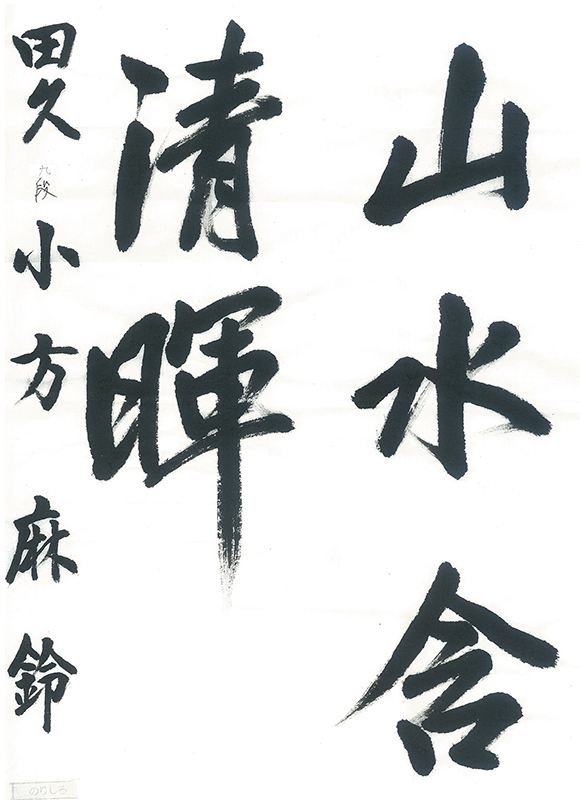 山水含
清暉
田久
九段
小方麻鈴
のりしろ